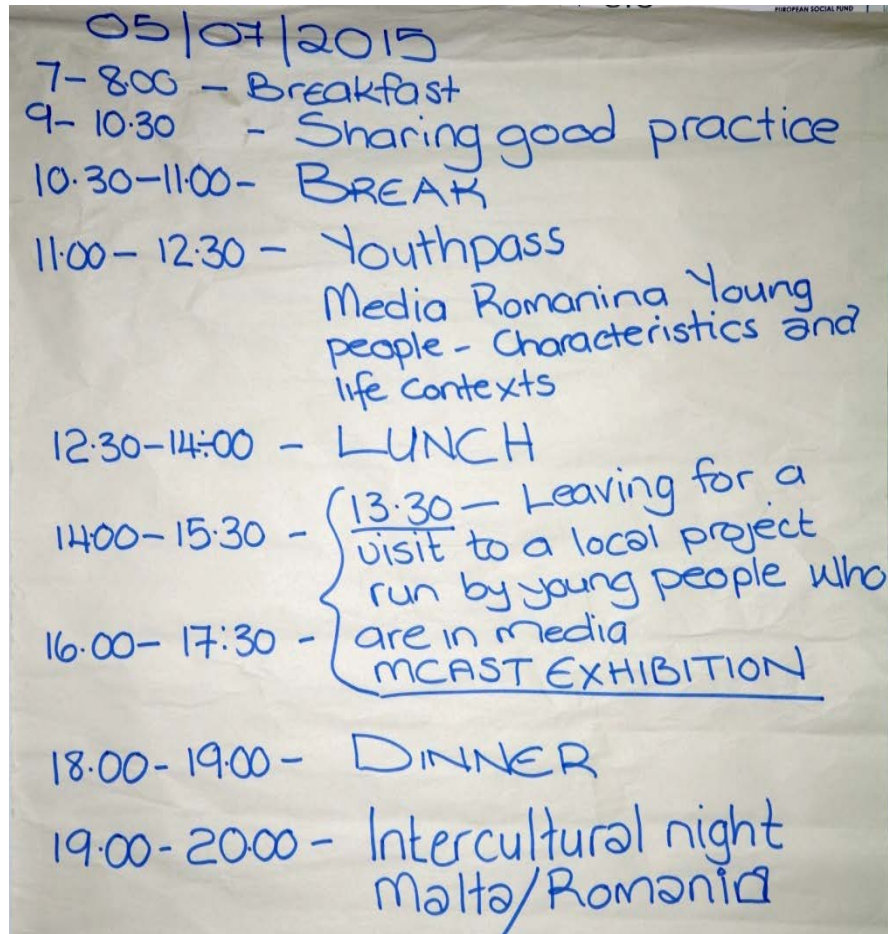 EUROPEAN SOCIAL FUND
05/07/2015
7- 8.00 - Breakfast
9- 10.30 - Sharing good practice
10.30-11.00- BREAK
11.00 - 12.30 - Youthpass
Media Romanina Young
people - Characteristics and
life contexts
12.30-14:00 - LUNCH
13.30 - Leaving for a
14.00-15.30 - visit to a local project
run by young people who
16.00- 17:30 - are in media
MCAST EXHIBITION
18.00- 19.00 - DINNER
19.00 - 20.00 - Intercultural night
Malta/Romania